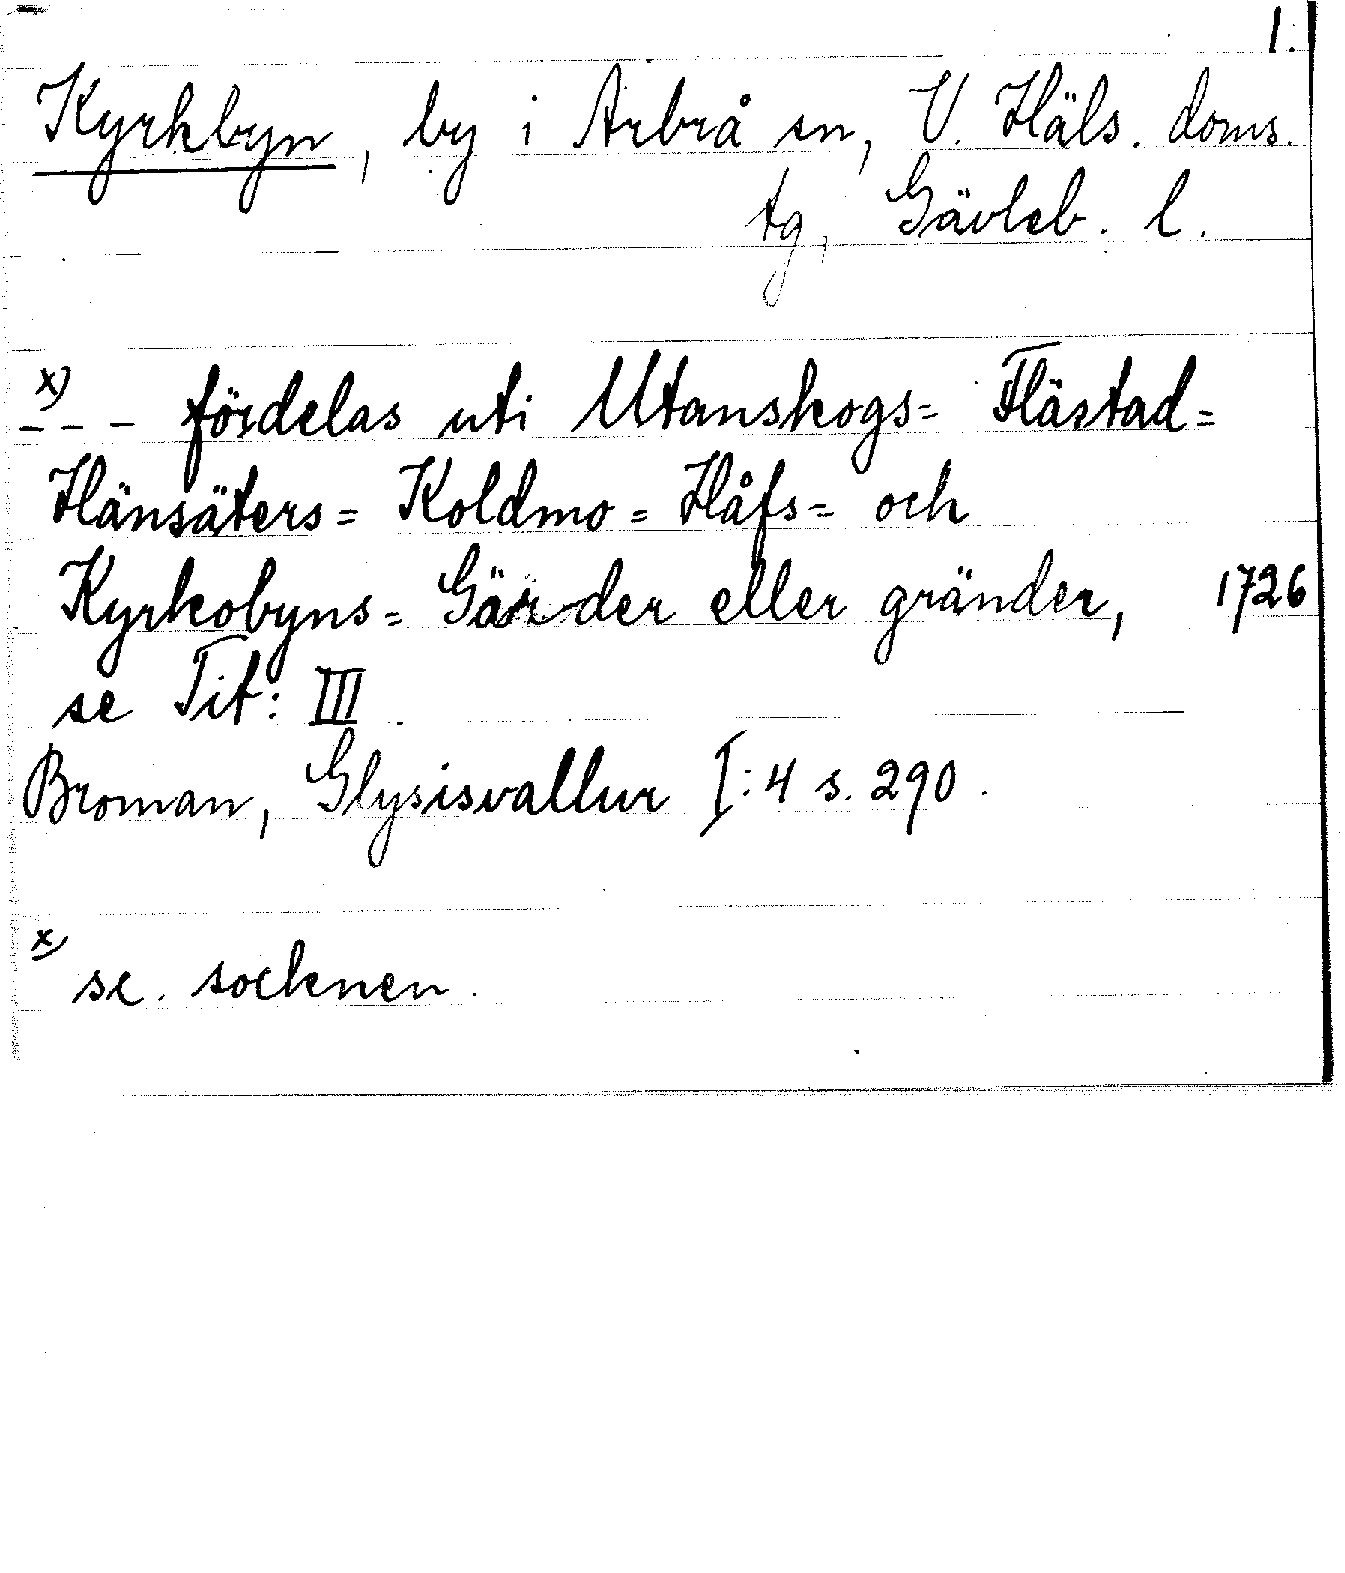 1.
Kyrkbyn, by i Arbrå sn, V. Häls. doms.
tg, Gävleb. l.
x)
- - - fördelas uti Utanskogs= Flästad=
Hänsäters= Koldmo= Håfs= och
Kyrkobyns= Gärder eller gränder, 1726
se Tit: III.
Broman, Glysisvallur I:4 s. 290.
x)
sc. socknen.